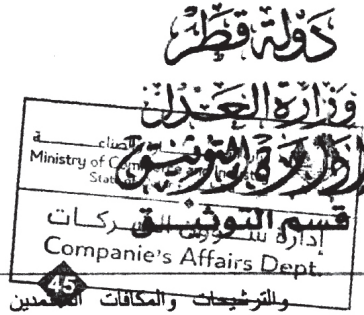 دولة قطر
وزارة العدل
إدارة التوثيق
Ministry of
قسم التوثيق
إدارة شؤون الشركات
Companie's Affairs Dept.
45
والترشيحات والمكافات